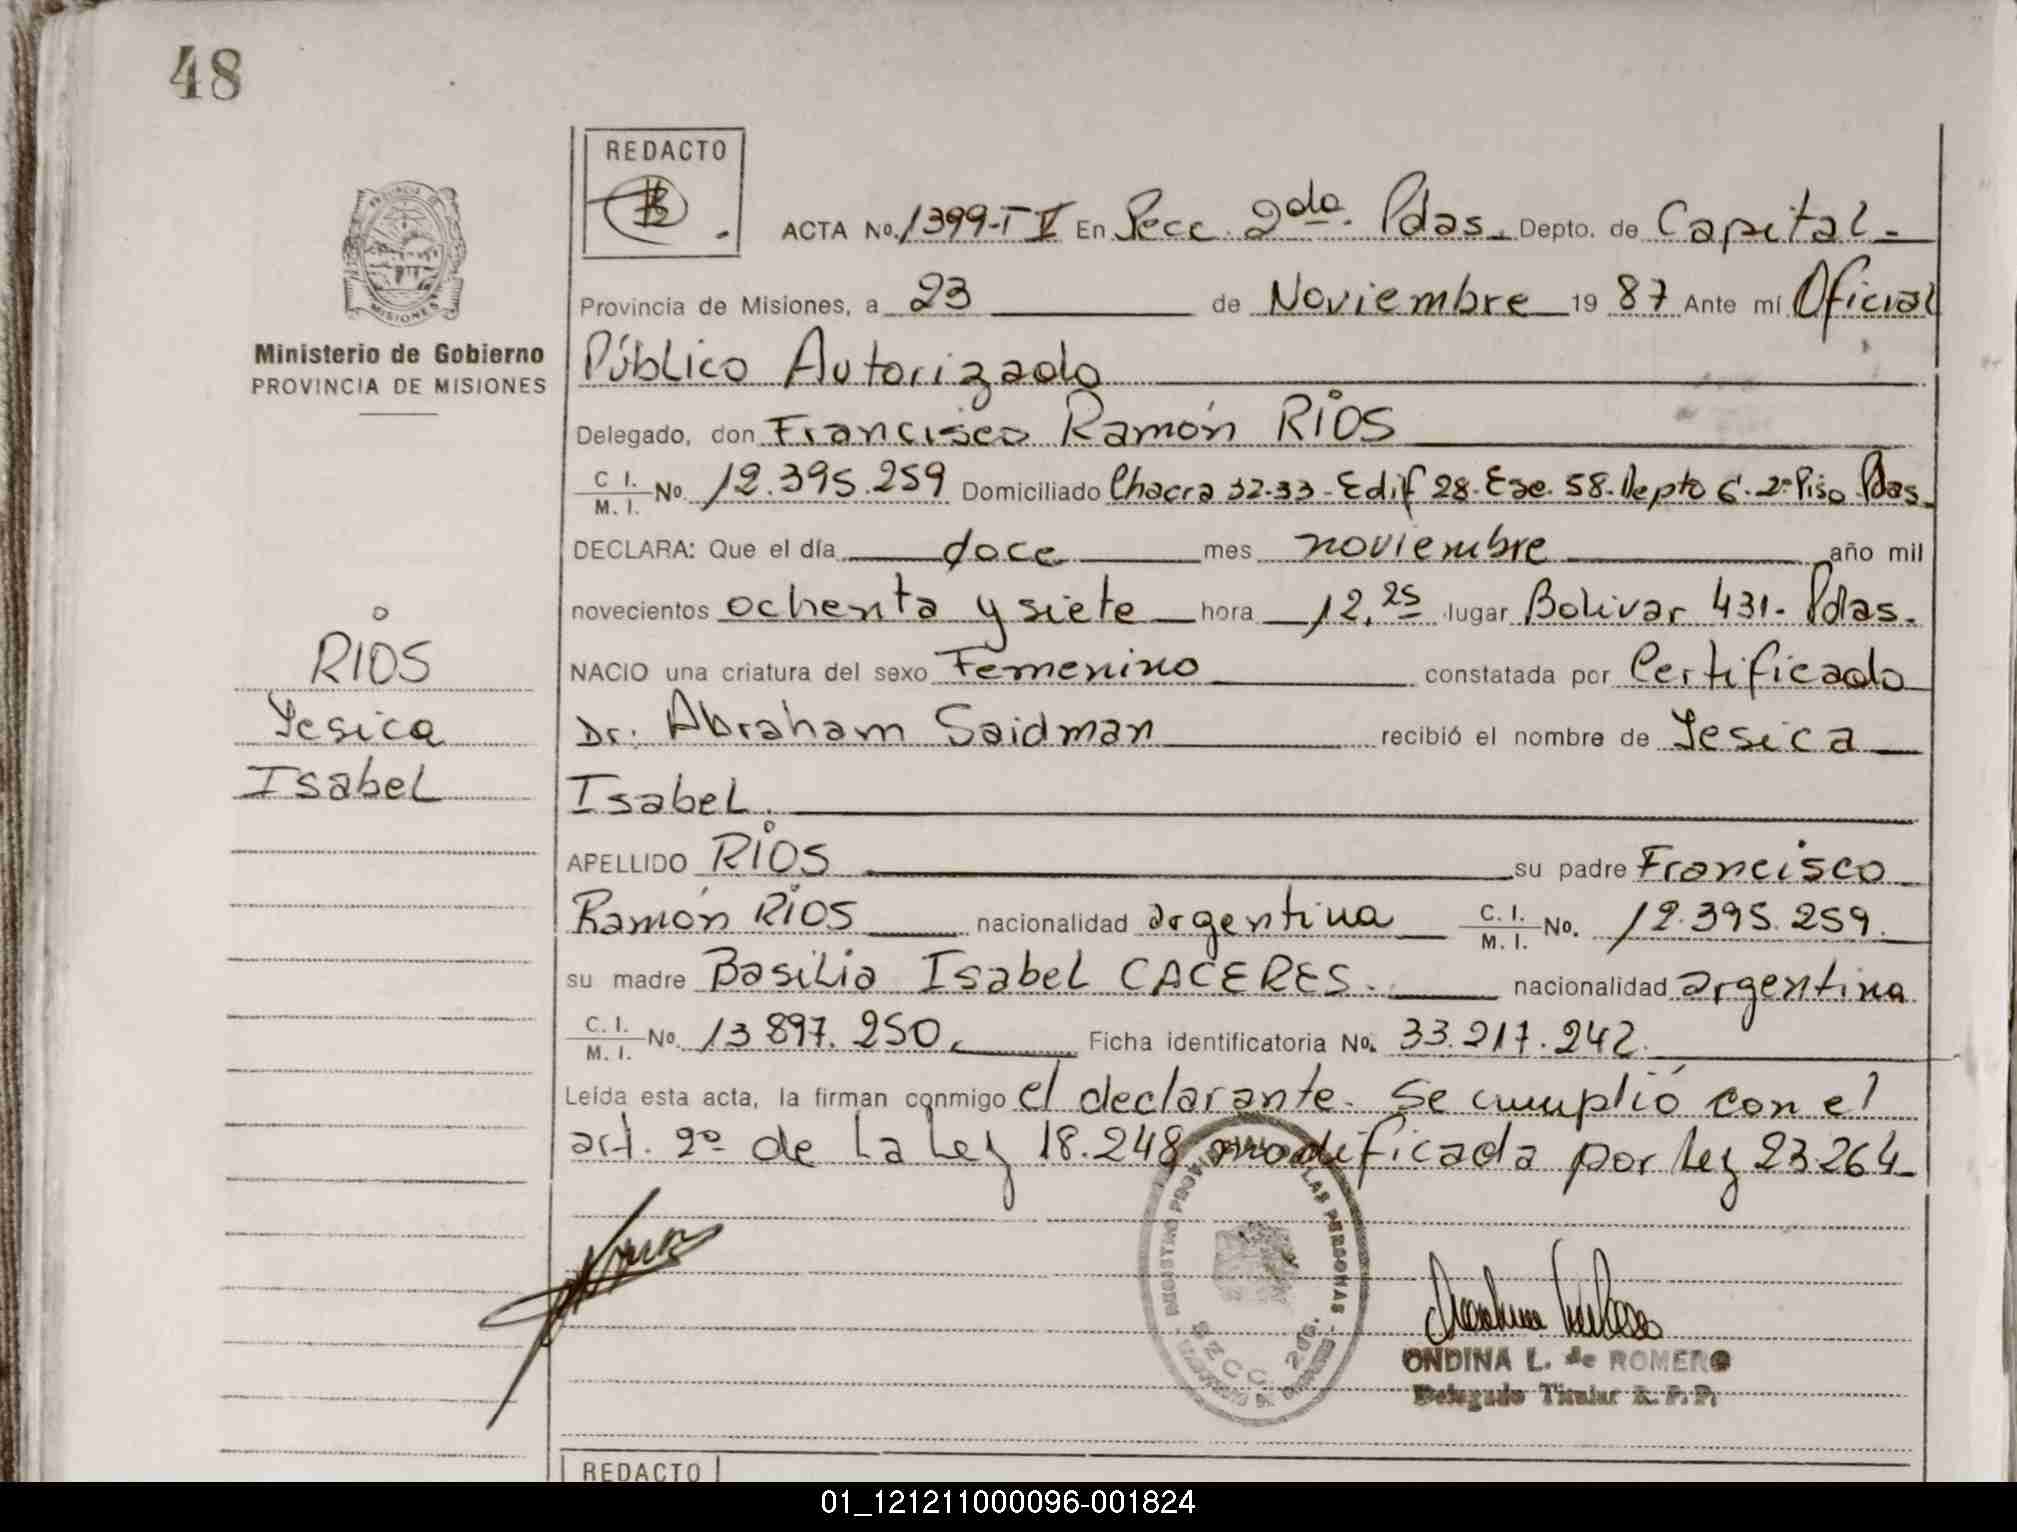 48
REDACTO
ACTA No. 1399-T V En Secc. 2da. Pdas. Depto. de Capital.
Provincia de Misiones, a 23 de Noviembre 19 87 Ante mí Oficial
Ministerio de Gobierno
PROVINCIA DE MISIONES
Público Autorizado
Delegado, don Francisco Ramón RIOS
C I. M. I. No. 12.395.259 Domiciliado Chacra 32-33-Edif 28-Esc. 58-Depto 6-2º Piso Pdas.
DECLARA: Que el día doce mes noviembre año mil
novecientos ochenta y siete hora 12,25 lugar Bolivar 431- Pdas.
NACIO una criatura del sexo Femenino constatada por Certificado
Dr. Abraham Saidman recibió el nombre de Yesica
Isabel.
RIOS
Yesica
Isabel
APELLIDO RIOS su padre Francisco
Ramón RIOS nacionalidad argentina C. I. M. I. No. 12.395.259.
su madre Basilia Isabel CACERES. nacionalidad argentina
C. I. M. I. No. 13 897. 250. Ficha identificatoria No. 33.217.242.
Leída esta acta, la firman conmigo el declarante. Se cumplió con el
art. 2º de la Ley 18.248 modificada por Ley 23.264
REGISTRO LAS PERSONAS
SECC. 2da.
ONDINA L. de ROMERO
Delegado Titular R. P. P.
REDACTO
01_121211000096-001824